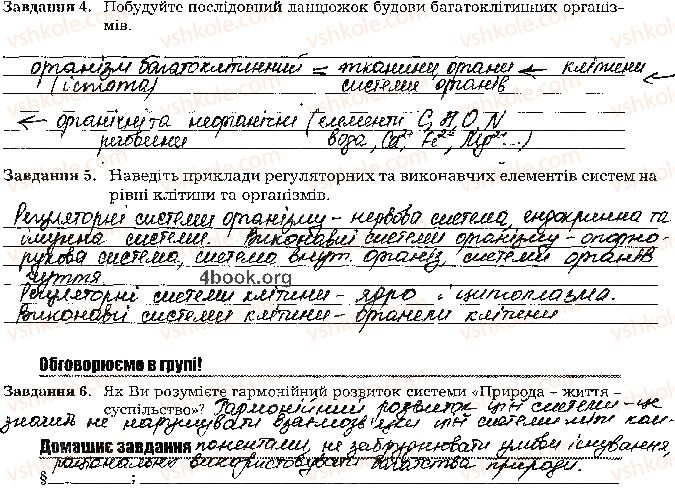 Завдання 4. Побудуйте послідовний ланцюжок будови багатоклітинних організ-
мів.
організм багатоклітинний = тканини органи ← клітини
(істота) системи органів ←
← органічні та неорганічні (елементи C, H, O, N
речовини вода, Ca²⁺, Fe²⁺, Mg²⁺...)
Завдання 5. Наведіть приклади регуляторних та виконавчих елементів систем на
рівні клітини та організмів.
Регуляторні системи організму - нервова система, ендокринна та
імунна системи. Виконавчі системи організму - опорно-
рухова система, система внут. організ, системи органів
чуття.
4book.org
Регуляторні системи клітини - ядро і цитоплазма.
Виконавчі системи клітини - органели клітини
Обговорюємо в групі!
Завдання 6. Як Ви розумієте гармонійний розвиток системи «Природа – життя –
суспільство»? Гармонійний розвиток цієї системи - це
значить не порушувати взаємозв'язки цієї системи між ком-
Домашнє завдання понентами, не забруднювати умови існування,
раціонально використовувати багатства природи.
§ ;